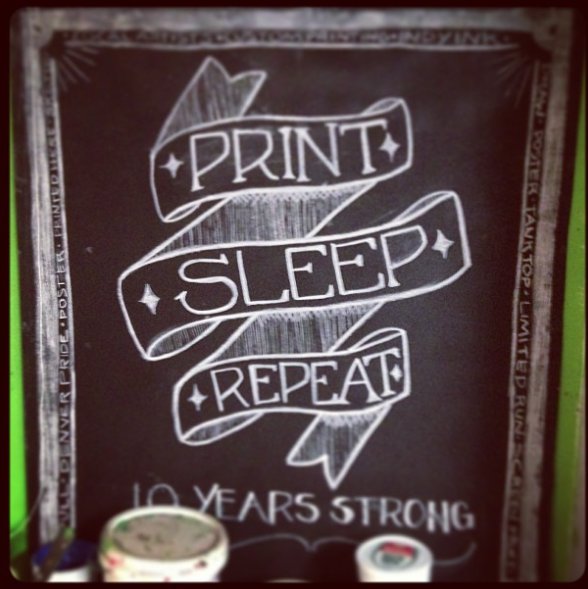 LOCAL ARTISTS • CUSTOM PRINTING • INDYINK •
PRINT
SLEEP
REPEAT
10 YEARS STRONG
DENVER PRIDE • POSTER • PRINTED HERE
POSTER • TANK TOP • LIMITED RUN